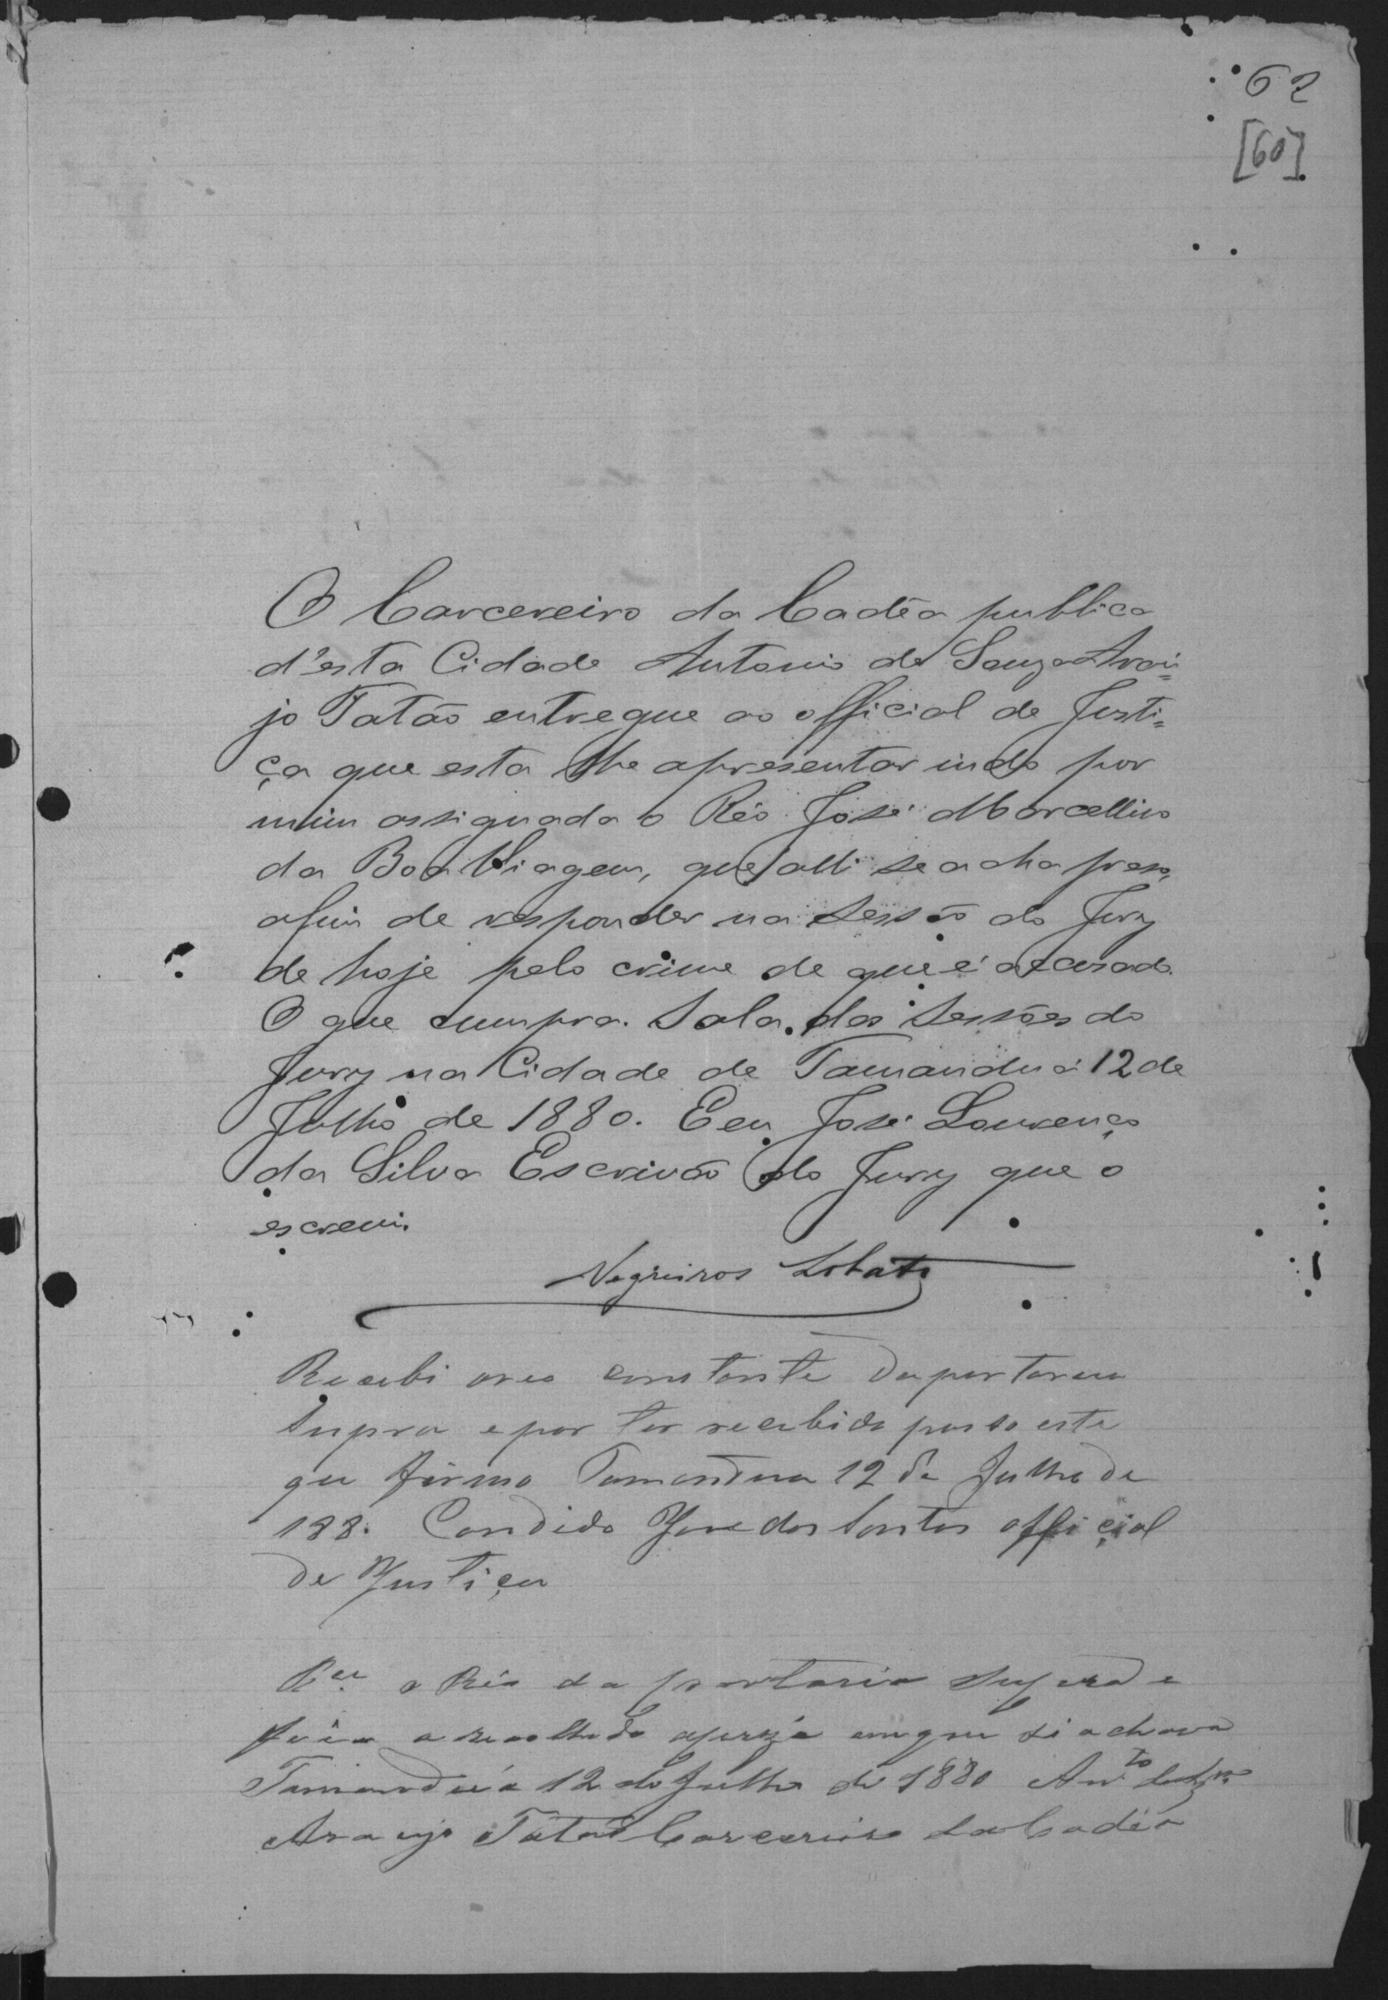 62
[60]
O Carcereiro da Cadêa publica
d'esta Cidade Antonio de Souza Arau=
jo Tatão entregue ao official de Justi=
ça que esta lhe apresentar indo por
mim assignada o Réo José Marcellino
da Boa Viagem, que alli se acha preso,
afim de responder na Sessão do Jury
de hoje pelo crime de que é accusado.
O que cumpra. Sala das Sessões do
Jury na Cidade de Tamanduá 12 de
Julho de 1880. Eeu José Lourenço
da Silva Escrivão do Jury que o
escrevi.
Negreiros Lobato
Recebi oreo constante daportaria
supra epor ter recebido passo este
que firmo Tamandua 12 de Julho de
188. Candido Jose dos Santos official
de Justiça
o Réo da portaria supra e
fica a recolhido aprizão emque si achava
Tamanduá 12 de Julho de 1880 Anto
Araujo Tatão Carcereiro da Cadêa